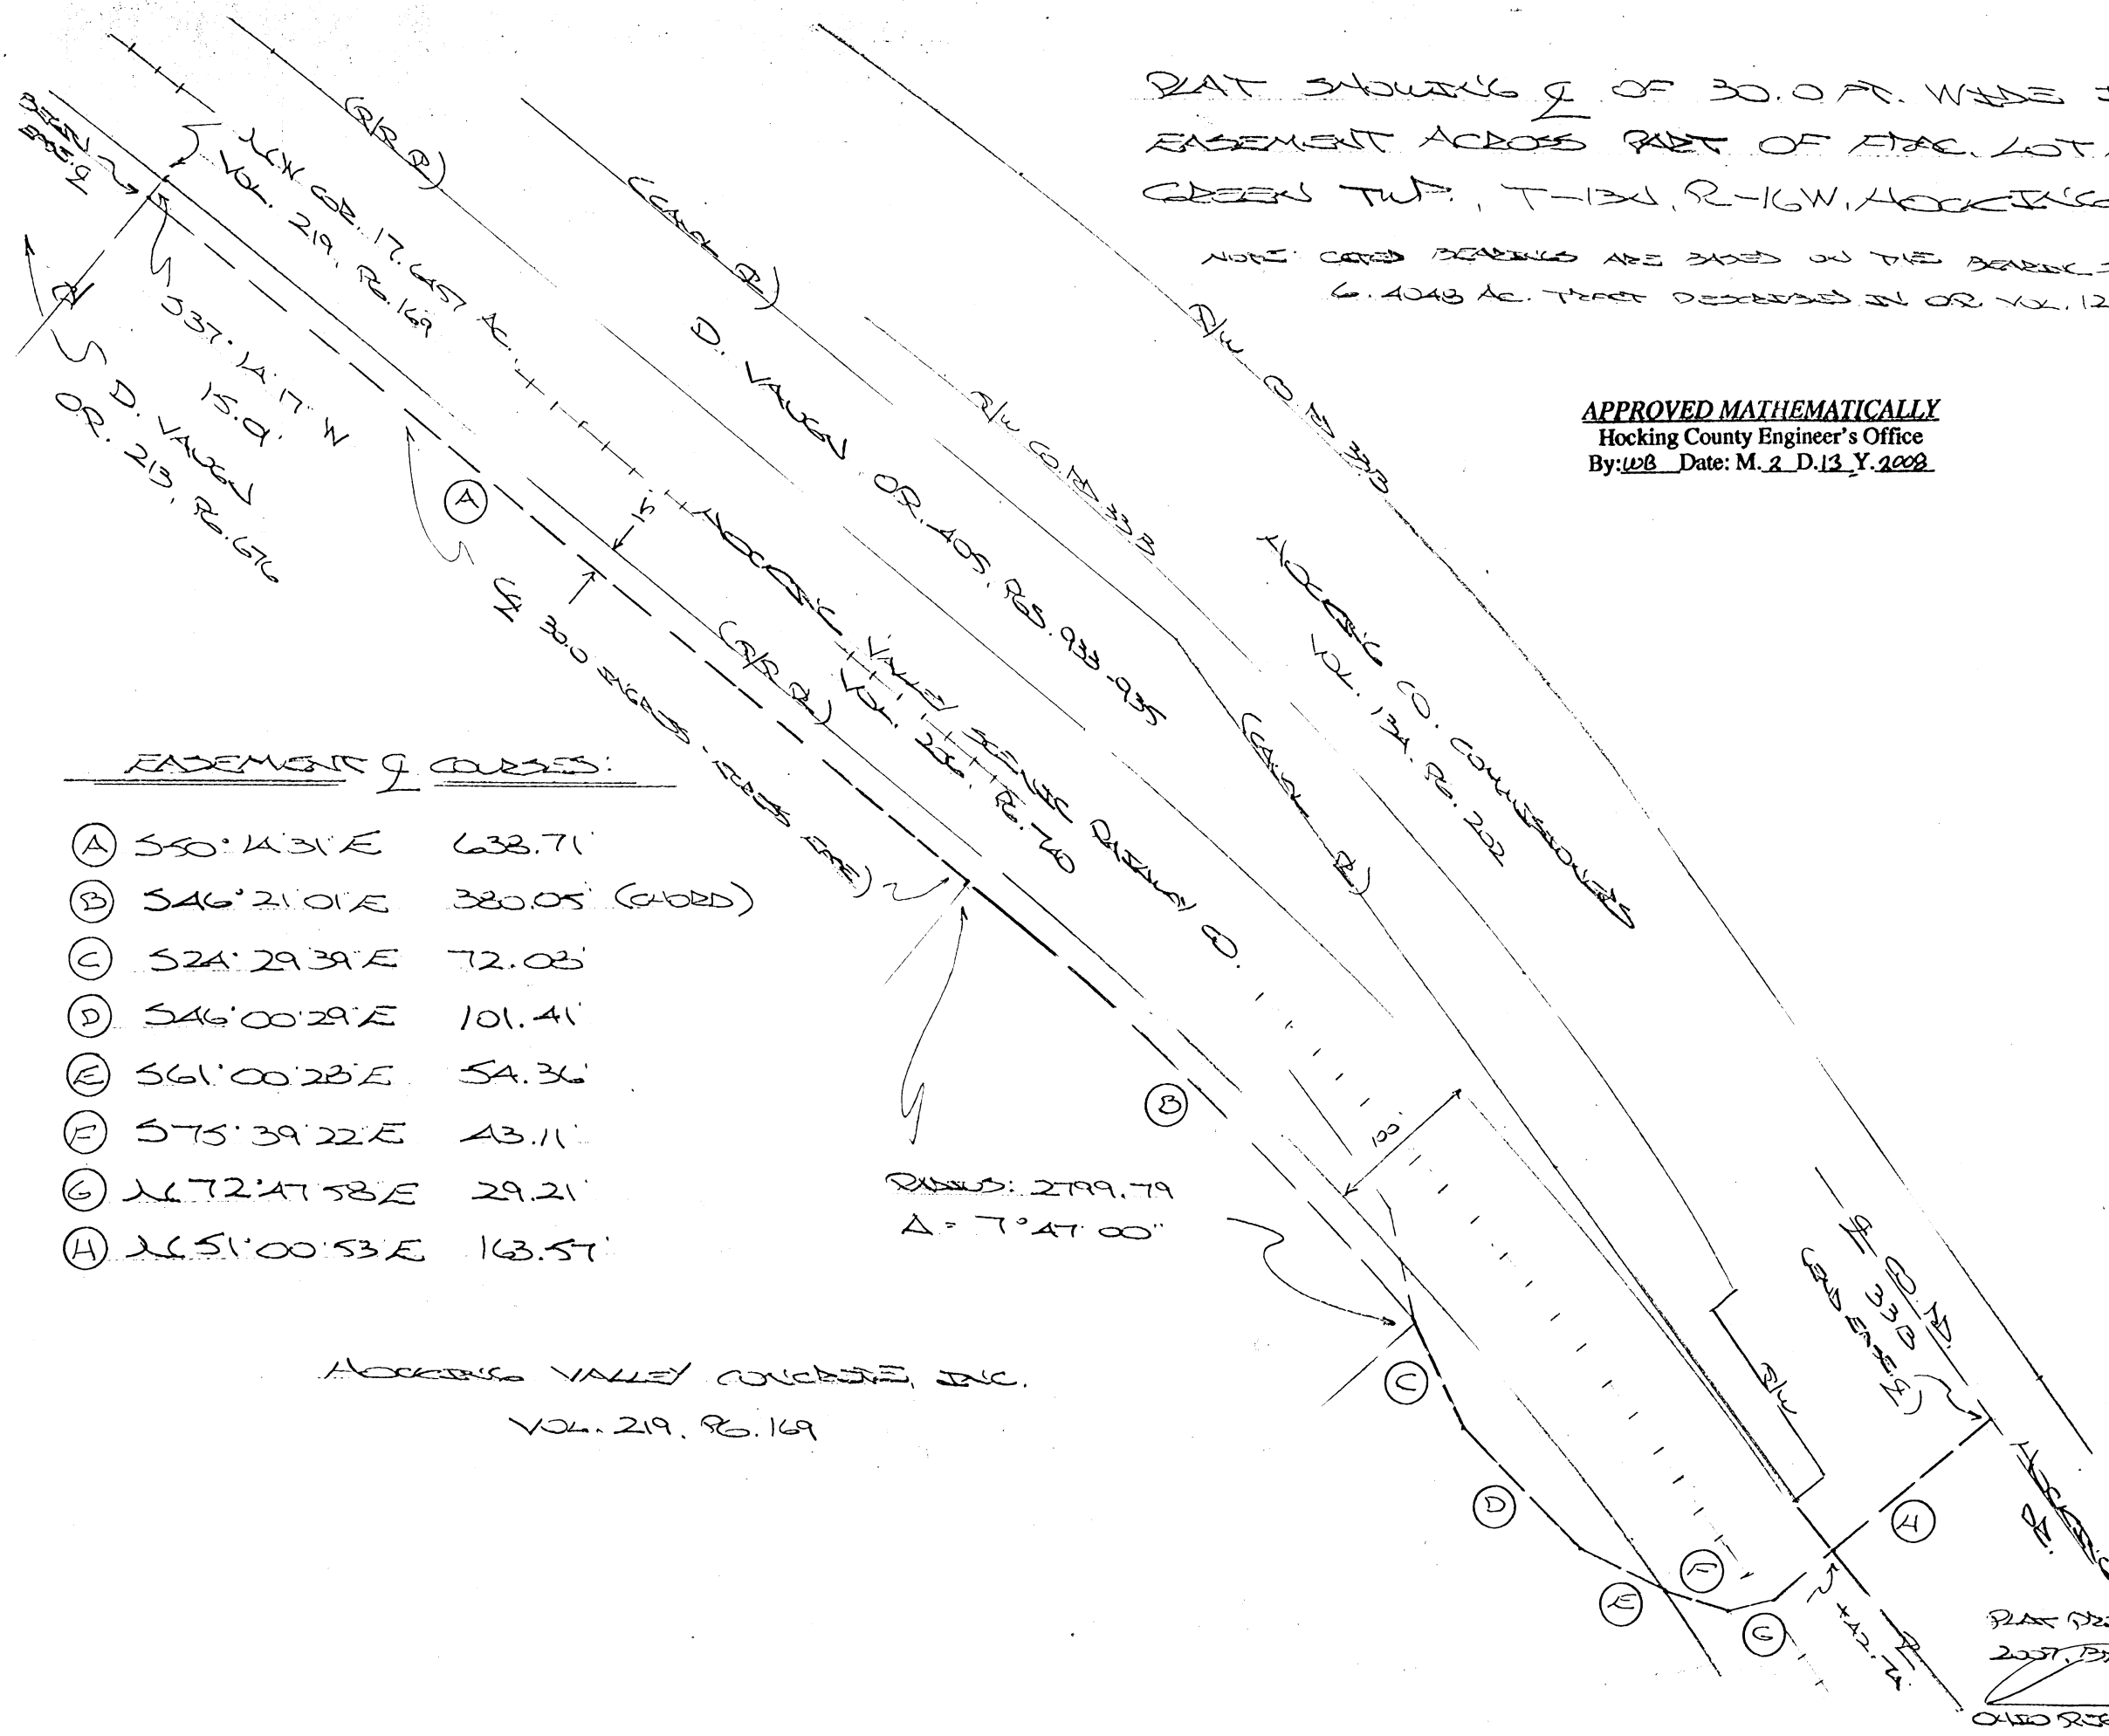 PLAT SHOWING ℄ OF 30.0 FT. WIDE I
EASEMENT ACROSS PART OF FRAC. LOT
GREEN TWP., T-13N, R-16W, HOCKING
NOTE: CITED BEARINGS ARE BASED ON THE BEARING
6.4048 AC. TRACT DESCRIBED IN OR VOL. 12
APPROVED MATHEMATICALLY
Hocking County Engineer's Office
By: WB Date: M. 2 D. 13 Y. 2008
BEGIN
EASE. ℄
NW COR. 17.6457 AC.
VOL. 219, PG. 169
(R/R ℄)
(CANAL ℄)
S37°14'17"W
15.0'
D. VAUGN
OR. 213, PG. 676
D. VAUGN OR. 405, PGS. 933-935
R/W CO. RD 33B
R/W CO. RD 33B
HOCKING CO. COMMISSIONERS
VOL. 134, PG. 202
A
15'
(℄ 30.0 INGRESS-EGRESS EASE)
(R/R ℄)
HOCKING VALLEY SCENIC RAILWAY CO.
VOL. 206, PG. 740
(CANAL ℄)
EASEMENT ℄ COURSES:
A S50°14'31"E 638.71'
B S46°21'01"E 380.05' (CHORD)
C S24°29'39"E 72.03'
D S46°00'29"E 101.41'
E S61°00'28"E 54.36'
F S75°39'22"E 43.11'
G N72°47'58"E 29.21'
H N51°00'53"E 163.57'
B
100'
RADIUS: 2799.79
Δ = 7°47'00"
℄ CO. RD.
33B
(END EASE. ℄)
R/W
C
D
E
F
G
H
HOCKING VALLEY CONCRETE, INC.
VOL. 219, PG. 169
HOCKING
PLAT PRE
2007, BY
OHIO REG